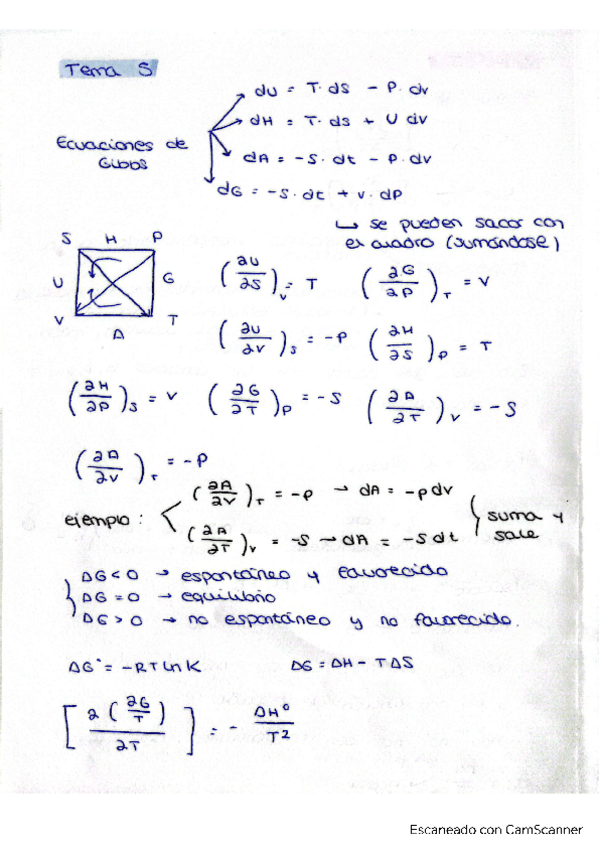 Tema 5
dU = T·dS - P·dv
dH = T·dS + U dv
Ecuaciones de Gibbs
dA = -S·dt - P·dv
dG = -S·dt + v·dP
↳ se pueden sacar con
el cuadro (sumándose)
S H P
U G
V A T
(∂U/∂S)v = T (∂G/∂P)T = V
(∂U/∂V)S = -P (∂H/∂S)P = T
(∂H/∂P)S = V (∂G/∂T)P = -S (∂A/∂T)V = -S
(∂A/∂V)T = -P
ejemplo: (∂A/∂V)T = -P → dA = -pdv
(∂A/∂T)V = -S → dA = -Sdt
suma y
sale
ΔG < 0 → espontáneo y favorecido
ΔG = 0 → equilibrio
ΔG > 0 → no espontáneo y no favorecido.
ΔG° = -RTlnK ΔG = ΔH - TΔS
[∂(∂G/T)/∂T] = - ΔH°/T²
Escaneado con CamScanner